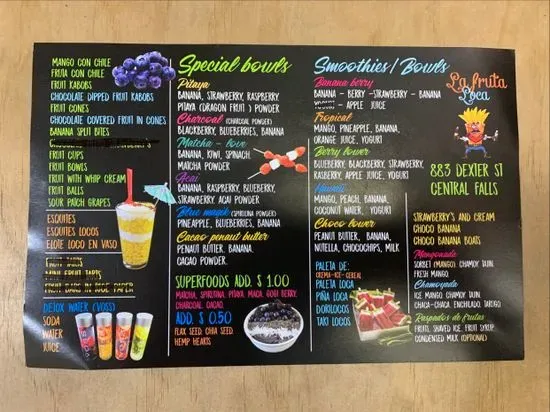 MANGO CON CHILE
FRUTA CON CHILE
FRUIT KABOBS
CHOCOLATE DIPPED FRUIT KABOBS
FRUIT CONES
CHOCOLATE COVERED FRUIT IN CONES
BANANA SPLIT BITES
FRUIT CUPS
FRUIT BOWLS
FRUIT WITH WHIP CREAM
FRUIT BALLS
SOUR PATCH GRAPES
ESQUITES
ESQUITES LOCOS
ELOTE LOCO EN VASO
FRUIT TARTS
MINI FRUIT TARTS
DETOX WATER (VOSS)
SODA
WATER
JUICE
Special bowls
Pitaya
BANANA, STRAWBERRY, RASPBERRY,
PITAYA (DRAGON FRUIT ) POWDER
Charcoal (CHARCOAL POWDER)
BLACKBERRY, BLUEBERRIES, BANANA
Matcha - love
BANANA, KIWI, SPINACH,
MATCHA POWDER
Acai
BANANA, RASPBERRY, BLUEBERRY,
STRAWBERRY ACAI POWDER
Blue magick (SPIRULINA POWDER)
PINEAPPLE, BLUEBERRIES, BANANA
Cacao penaut butter
PENAUT BUTTER, BANANA,
CACAO POWDER.
SUPERFOODS ADD. $ 1.00
MATCHA, SPIRUTINA, PITAYA, MACA, GOGI BERRY,
CHARCOAL CACAO
ADD. $ 0.50
FLAX SEED, CHIA SEED,
HEMP HEARTS
Smoothies/Bowls
Banana berry
BANANA - BERRY -STRAWBERRY - BANANA
YOGURT - APPLE JUICE
Tropical
MANGO, PINEAPPLE, BANANA,
ORANGE JUICE, YOGURT
Berry lower
BLUEBERRY, BLACKBERRY, STRAWBERRY,
RASPBERRY, APPLE JUICE, YOGURT
Hawaii
MANGO, PEACH, BANANA,
COCONUT WATER, YOGURT
Choco lower
PEANUT BUTTER, BANANA,
NUTELLA, CHOCOCHIPS, MILK
PALETA DE:
CREMA-ICE-CEREAL
PALETA LOCA
PIÑA LOCA
DORILOCOS
TAKI LOCOS
La fruta
Loca
883 DEXTER ST
CENTRAL FALLS
STRAWBERRY'S AND CREAM
CHOCO BANANA
CHOCO BANANA BOATS
Mangonada
SORBET (MANGO) CHAMOY, TAJIN,
FRESH MANGO
Chamoyada
ICE MANGO, CHAMOY, TAJIN,
CHACA-CHACA, ENCHILADO, TARUGO
Raspados de frutas
FRUIT, SHAVED ICE, FRUIT SYRUP,
CONDENSED MILK (OPTIONAL)